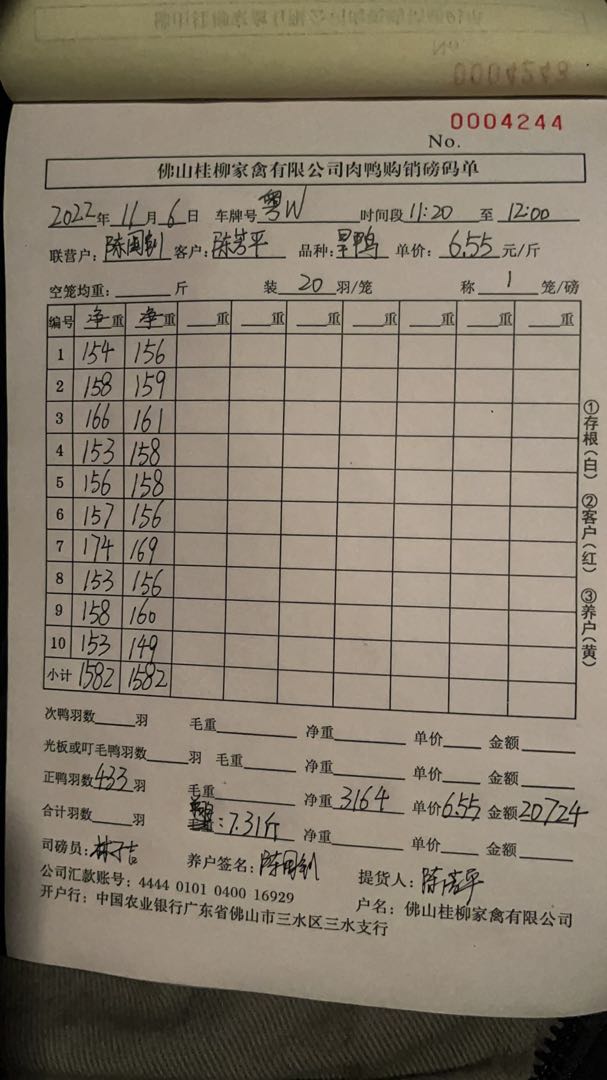 0004243
0004244
No.
佛山桂柳家禽有限公司肉鸭购销磅码单
2022年11月6日 车牌号 粤W 时间段 11:20 至 12:00
联营户：陈国钊 客户：陈芳平 品种：旱鸭 单价：6.55 元/斤
空笼均重：____斤 装 20 羽/笼 称 1 笼/磅
编号 净重 净重 ___重 ___重 ___重 ___重 ___重 ___重
1 154 156
2 158 159
3 166 161
4 153 158
5 156 158
6 157 156
7 174 169
8 153 156
9 158 160
10 153 149
小计 1582 1582
①存根(白) ②客户(红) ③养户(黄)
次鸭羽数____羽 毛重____ 净重____ 单价____ 金额____
光板或叮毛鸭羽数____羽 毛重____ 净重____ 单价____ 金额____
正鸭羽数433羽 毛重____ 净重3164 单价6.55 金额20724
合计羽数____羽 ：7.31斤 净重____ 单价____ 金额____
司磅员： 养户签名：陈国钊 提货人：陈芳平
公司汇款账号：4444 0101 0400 16929 户名：佛山桂柳家禽有限公司
开户行：中国农业银行广东省佛山市三水区三水支行